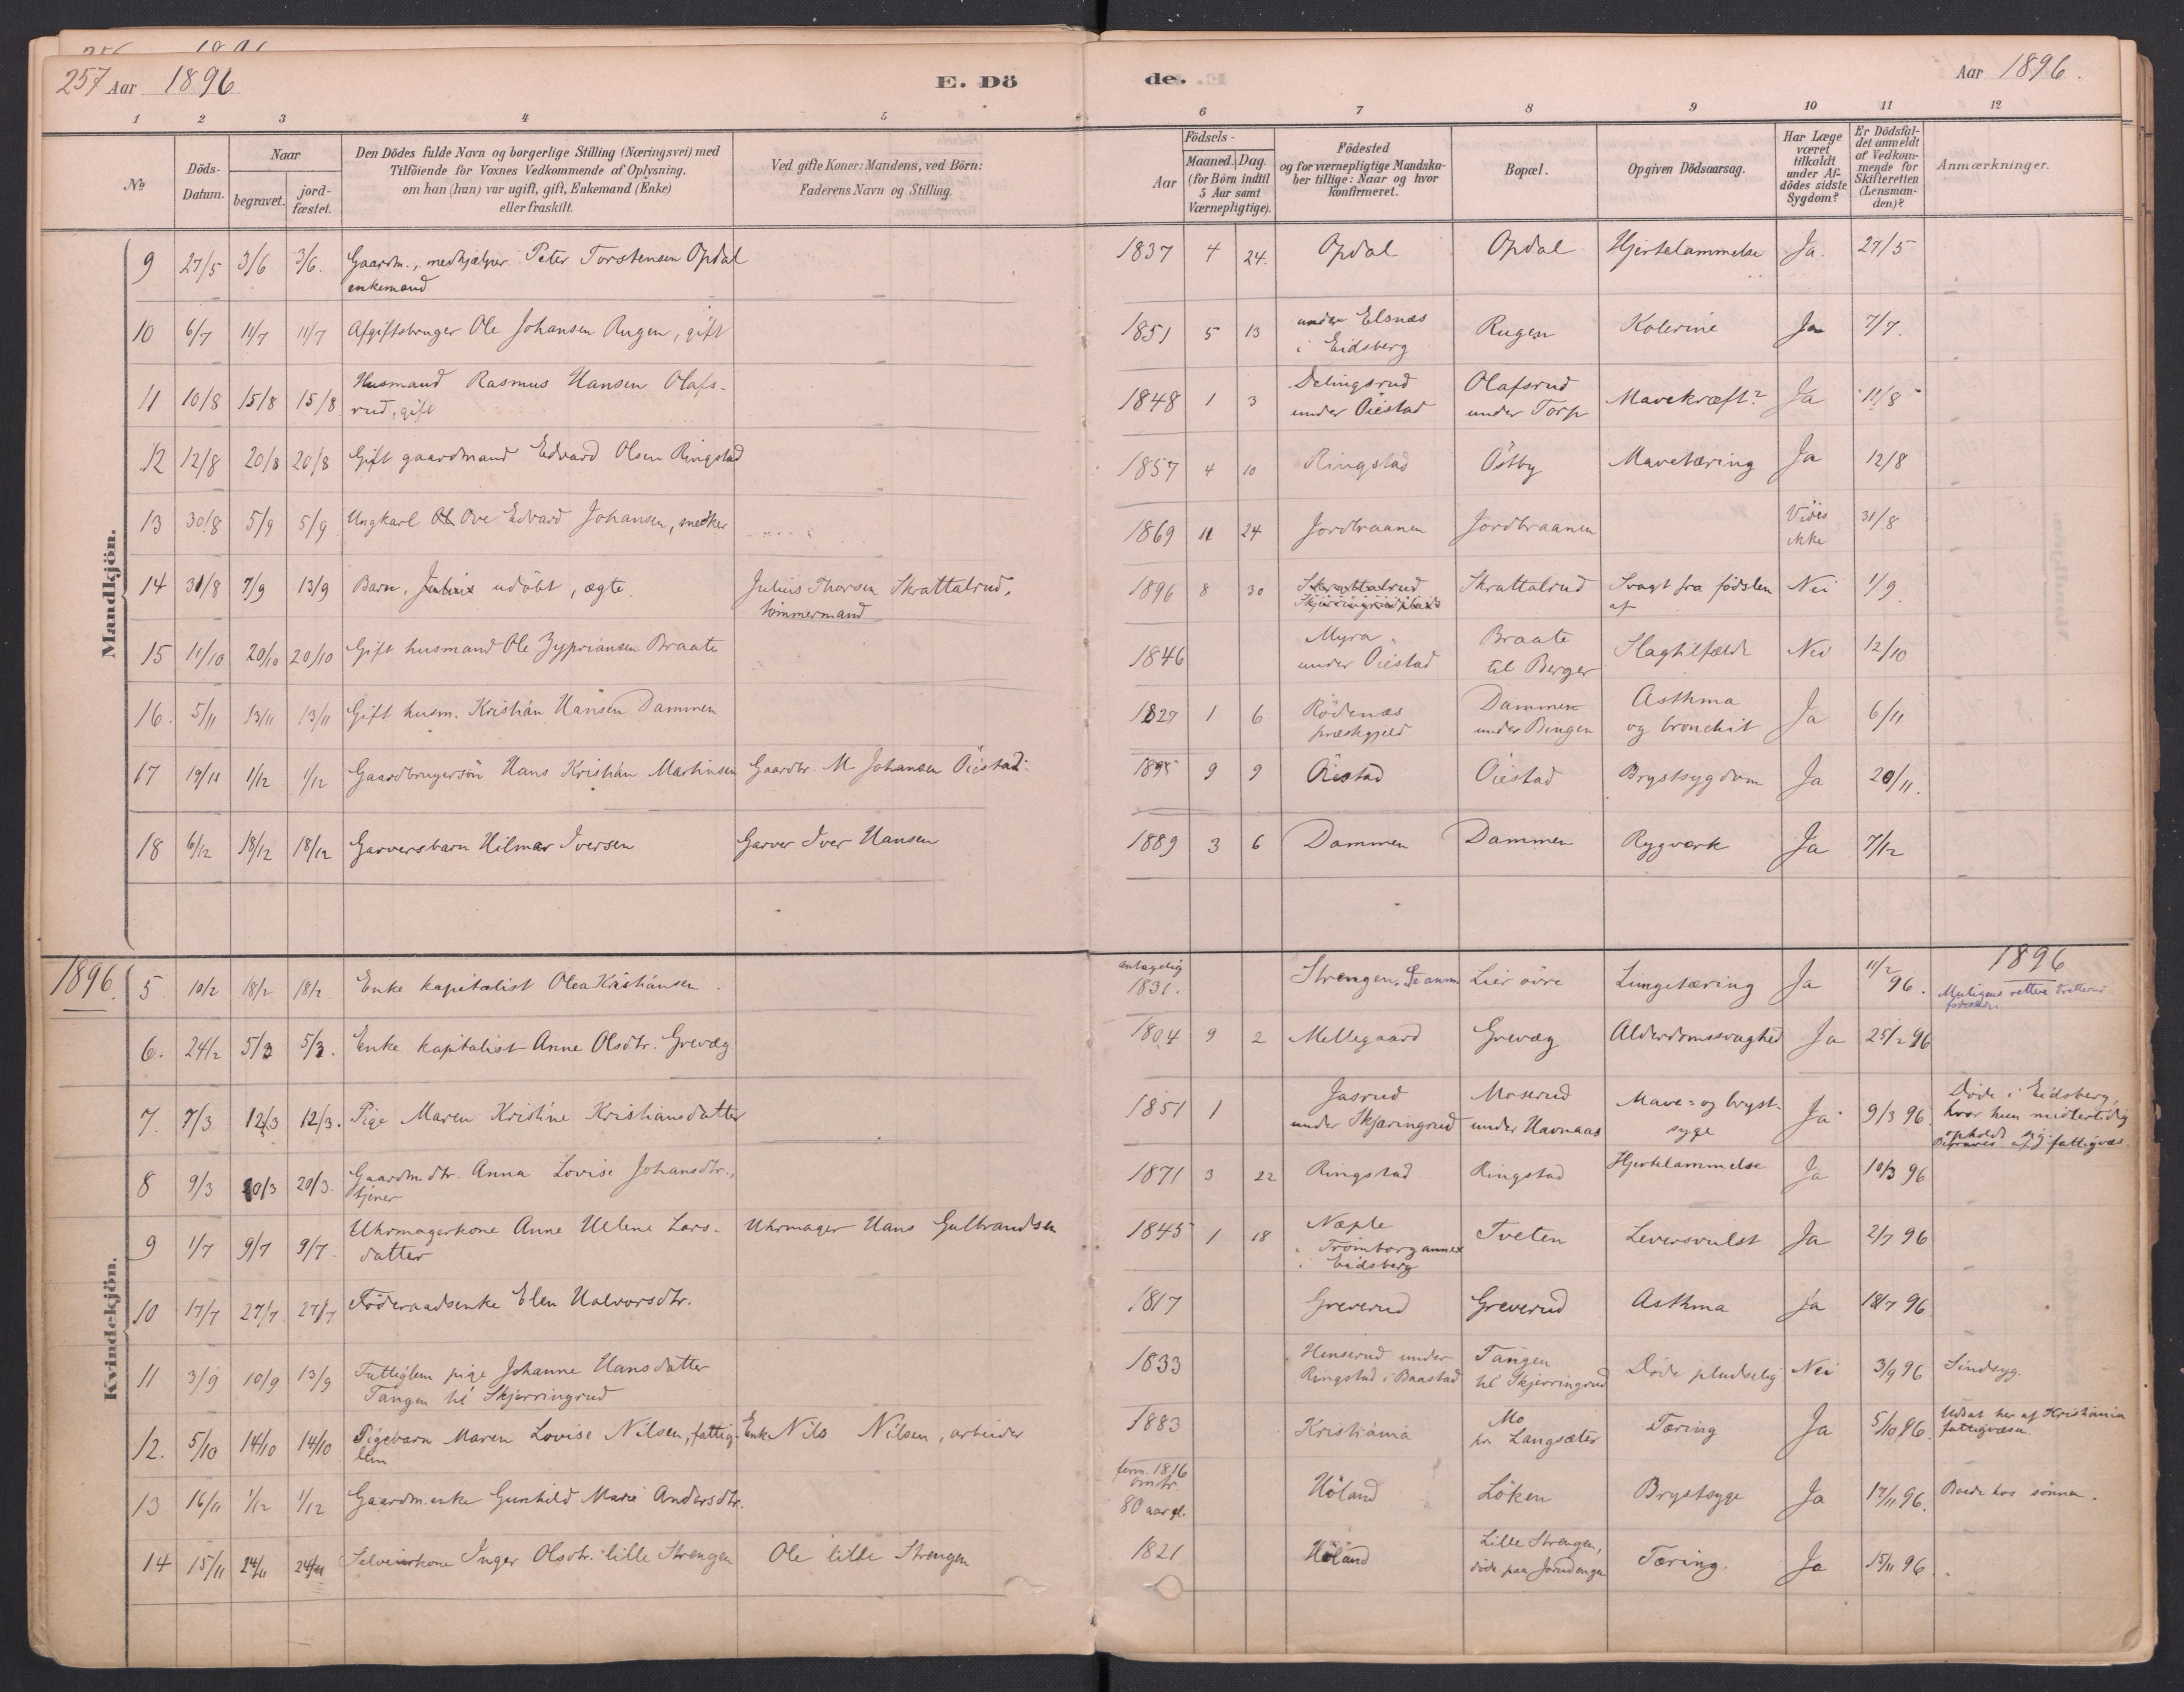 257 Aar 1896. E. Dö de. Aar 1896.
1 2 3 4 5 6 7 8 9 10 11 12
No
Döds-Datum.
Naar
begravet. jordfæstet.
Den Dödes fulde Navn og borgerlige Stilling (Næringsvei) med
Tilföiende for Voxnes Vedkommende af Oplysning.
om han (hun) var ugift, gift, Enkemand (Enke)
eller fraskilt.
Ved gifte Koner: Mandens, ved Börn:
Faderens Navn og Stilling.
Födsels-
Aar Maaned. Dag.
(for Börn indtil
5 Aar samt
Værnepligtige).
Födested
og for værnepligtige Mandskaber tillige: Naar og hvor
konfirmeret.
Bopæl.
Opgiven Dödsaarsag.
Har Læge
været
tilkaldt
under Afdödes sidste
Sygdom?
Er Dödsfaldet anmeldt
af Vedkommende for
Skifteretten
(Lensmanden)?
Anmærkninger.
Mandkjön.
9 27/5 3/6 3/6. Gaardm., medhjælper Peter Torstensen Opdal 1837 4 24. Opdal Opdal Hjertelammelse Ja. 27/5
enkemand
10 6/7 11/7 11/7 Afgiftsbruger Ole Johansen Rugen, gift 1851 5 13 under Elsnæs Rugen Kolerine Ja 7/7.
i Eidsberg
11 10/8 15/8 15/8 Husmand Rasmus Hansen Olafs- 1848 1 3 Delingsrud Olafsrud Mavekræft? Ja 11/8
rud, gift under Öiestad under Torp
12 12/8 20/8 20/8 Gift gaardmand Edvard Olsen Ringstad 1857 4 10 Ringstad Östby Mavetæring Ja 12/8
13 30/8 5/9 5/9 Ungkarl Ove Edvard Johansen, snedker 1869 11 24 Jordbraanen Jordbraanen Vides 31/8
ikke
14 31/8 7/9 13/9 Barn, udöbt, ægte. Julius Thorsen Skrattalrud, 1896 8 30 Skrattalrud Skrattalrud Svagt fra födslen Nei 1/9
tömmermand af
15 11/10 20/10 20/10 Gift husmand Ole Zypriansen Braate 1846 Myra Braate Slagtilfælde Nei 12/10
under Öiestad til Berger
16. 5/11 13/11 13/11 Gift husm. Kristian Hansen Dammen 1827 1 6 Rödenæs Dammen Asthma Ja 6/11
præstegjeld under Bingen og bronchit
17 19/11 1/12 1/12 Gaardbrugersön Hans Kristian Martinsen Gaardbr. M. Johansen Öiestad 1895 9 9 Öiestad Öiestad Brystsygdom Ja 20/11.
18 6/12 18/12 18/12 Garversbarn Hilmar Iversen Garver Iver Hansen 1889 3 6 Dammen Dammen Rygværk Ja 7/12
Kvindekjön.
1896. 1896
5 10/2 18/2 18/2 Enke kapitalist Olea Kristiansen. antagelig Strengen. Se anm Lier övre Lungetæring Ja 11/2 96. Muligens rettere
1831. födested
6. 24/2 5/3 5/3. Enke kapitalist Anne Olsdtr. Grevæg 1804 9 2 Mellegaard Grevæg Alderdomssvaghed Ja 25/2 96
7. 7/3 12/3 12/3. Pige Maren Kristine Kristiansdatter 1851 1 Jasrud Moserud Mave= og bryst- Ja 9/3 96 Döde i Eidsberg,
under Skjæringrud under Havnaas syge hvor hun midlertidig
opholdt sig. af fattigvæs.
8 9/3 20/3 20/3. Gaardm.dtr. Anna Lovise Johansdtr., 1871 3 22 Ringstad Ringstad Hjertelammelse Ja 10/3 96
tjener
9 1/7 9/7 9/7. Uhrmagerkone Anne Helene Lars- Uhrmager Hans Gulbrandsen 1845 1 18 Næple Tveten Leversvulst Ja 2/7 96
datter i Trömborg annex
i Eidsberg
10 17/7 27/7 27/7 Föderaadsenke Elen Halvorsdtr. 1817 Greverud Greverud Asthma Ja 18/7 96
11 3/9 10/9 13/9 Fattiglem pige Johanne Hansdatter 1833 Henserud under Tangen Döde pludselig Nei 3/9 96 Sindsyg.
Tangen til Skjærringrud Ringstad i Baastad til Skjerringrud
12. 5/10 14/10 14/10 Pigebarn Maren Lovise Nilsen, fattig- Enk Nils Nilsen, arbeider 1883 Kristiania Mo Tæring Ja 5/10 96. Udsat her af Kristiania
lem fra Langsæter fattigvæsen.
13 16/11 1/12 1/12 Gaardm.enke Gunhild Marie Andersdtr. 1816 Höland Löken Brystsyge Ja 17/11 96. Boede hos sönnen.
omtr.
80 aar gl.
14 15/11 24/11 24/11 Selveierkone Inger Olsdtr. lille Strengen Ole lille Strengen 1821 Höland Lille Strengen, Tæring. Ja 15/11 96.
döde paa